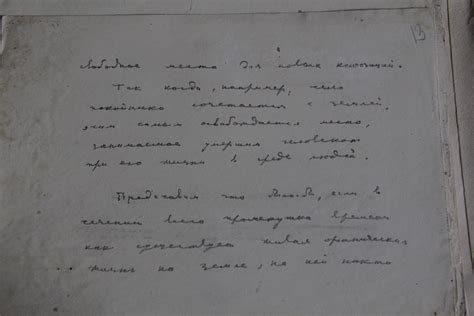 13
свободное место для новых композиций.
Так когда, например, тело
покойника сочетается с землей,
тем самым освобождается место,
занимаемое умершим человеком
при его жизни в среде людей.
Представим что было бы, если в
течении всего промежутка времени
как существует живая органическая
жизнь на земле, на ней никто